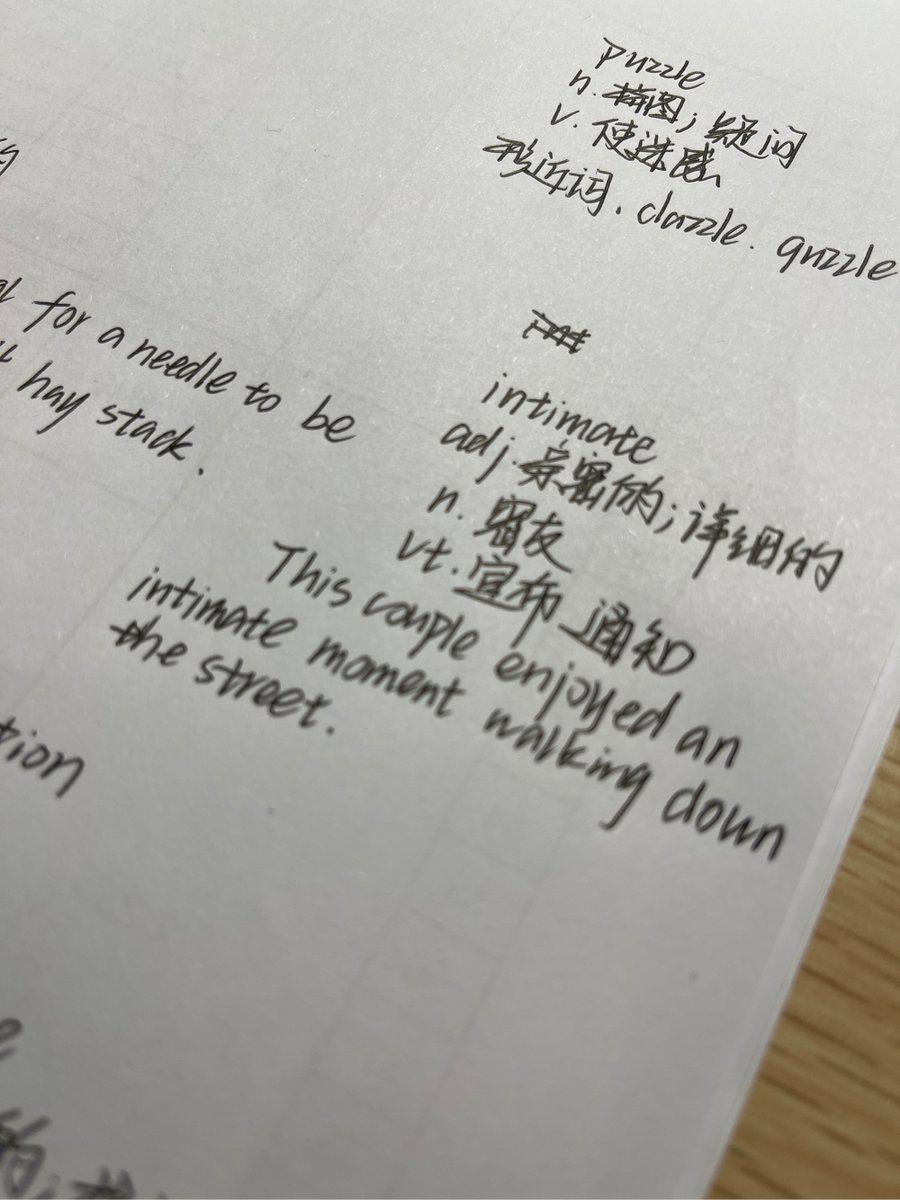 puzzle
n. 拼图；疑问
v. 使迷惑
形近词. dazzle. guzzle
的
for a needle to be
hay stack.
intimate
adj. 亲密的；详细的
n. 密友
vt. 宣布 通知
This couple enjoyed an
intimate moment walking down
the street.
tion